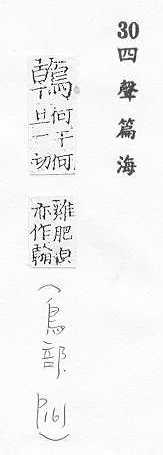 30 四聲篇海
鶾 何干何
旦二切
雞肥皃
亦作翰
(鳥部 P161)